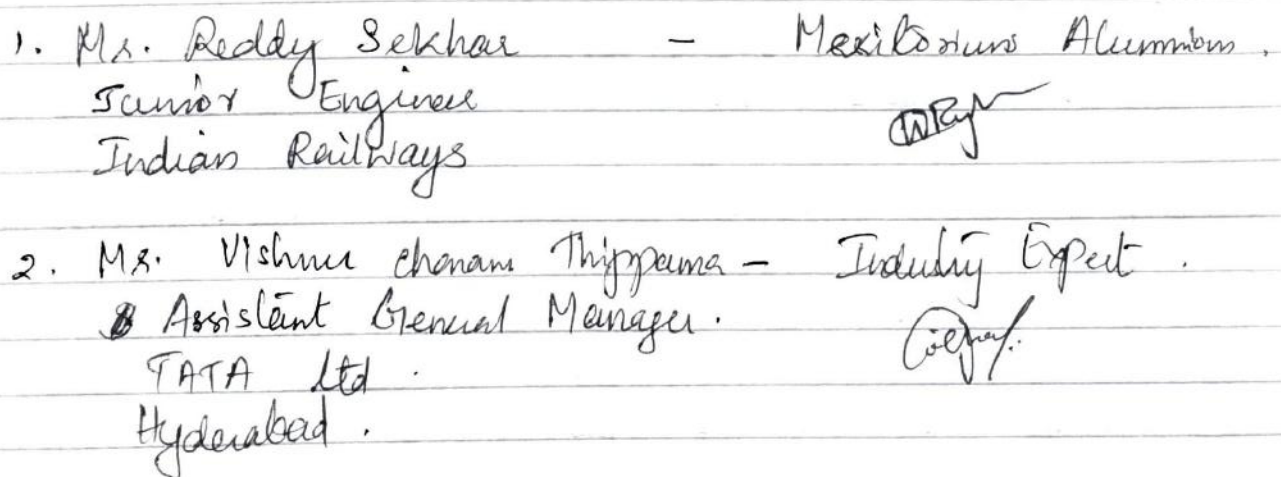 1. Mr. Reddy Sekhar - Meritorius Alumnion.
Junior Engineer
Indian Railways
2. Mr. Vishnu charan Thippama - Industry Expert.
Assistant General Manager.
TATA Ltd.
Hyderabad.